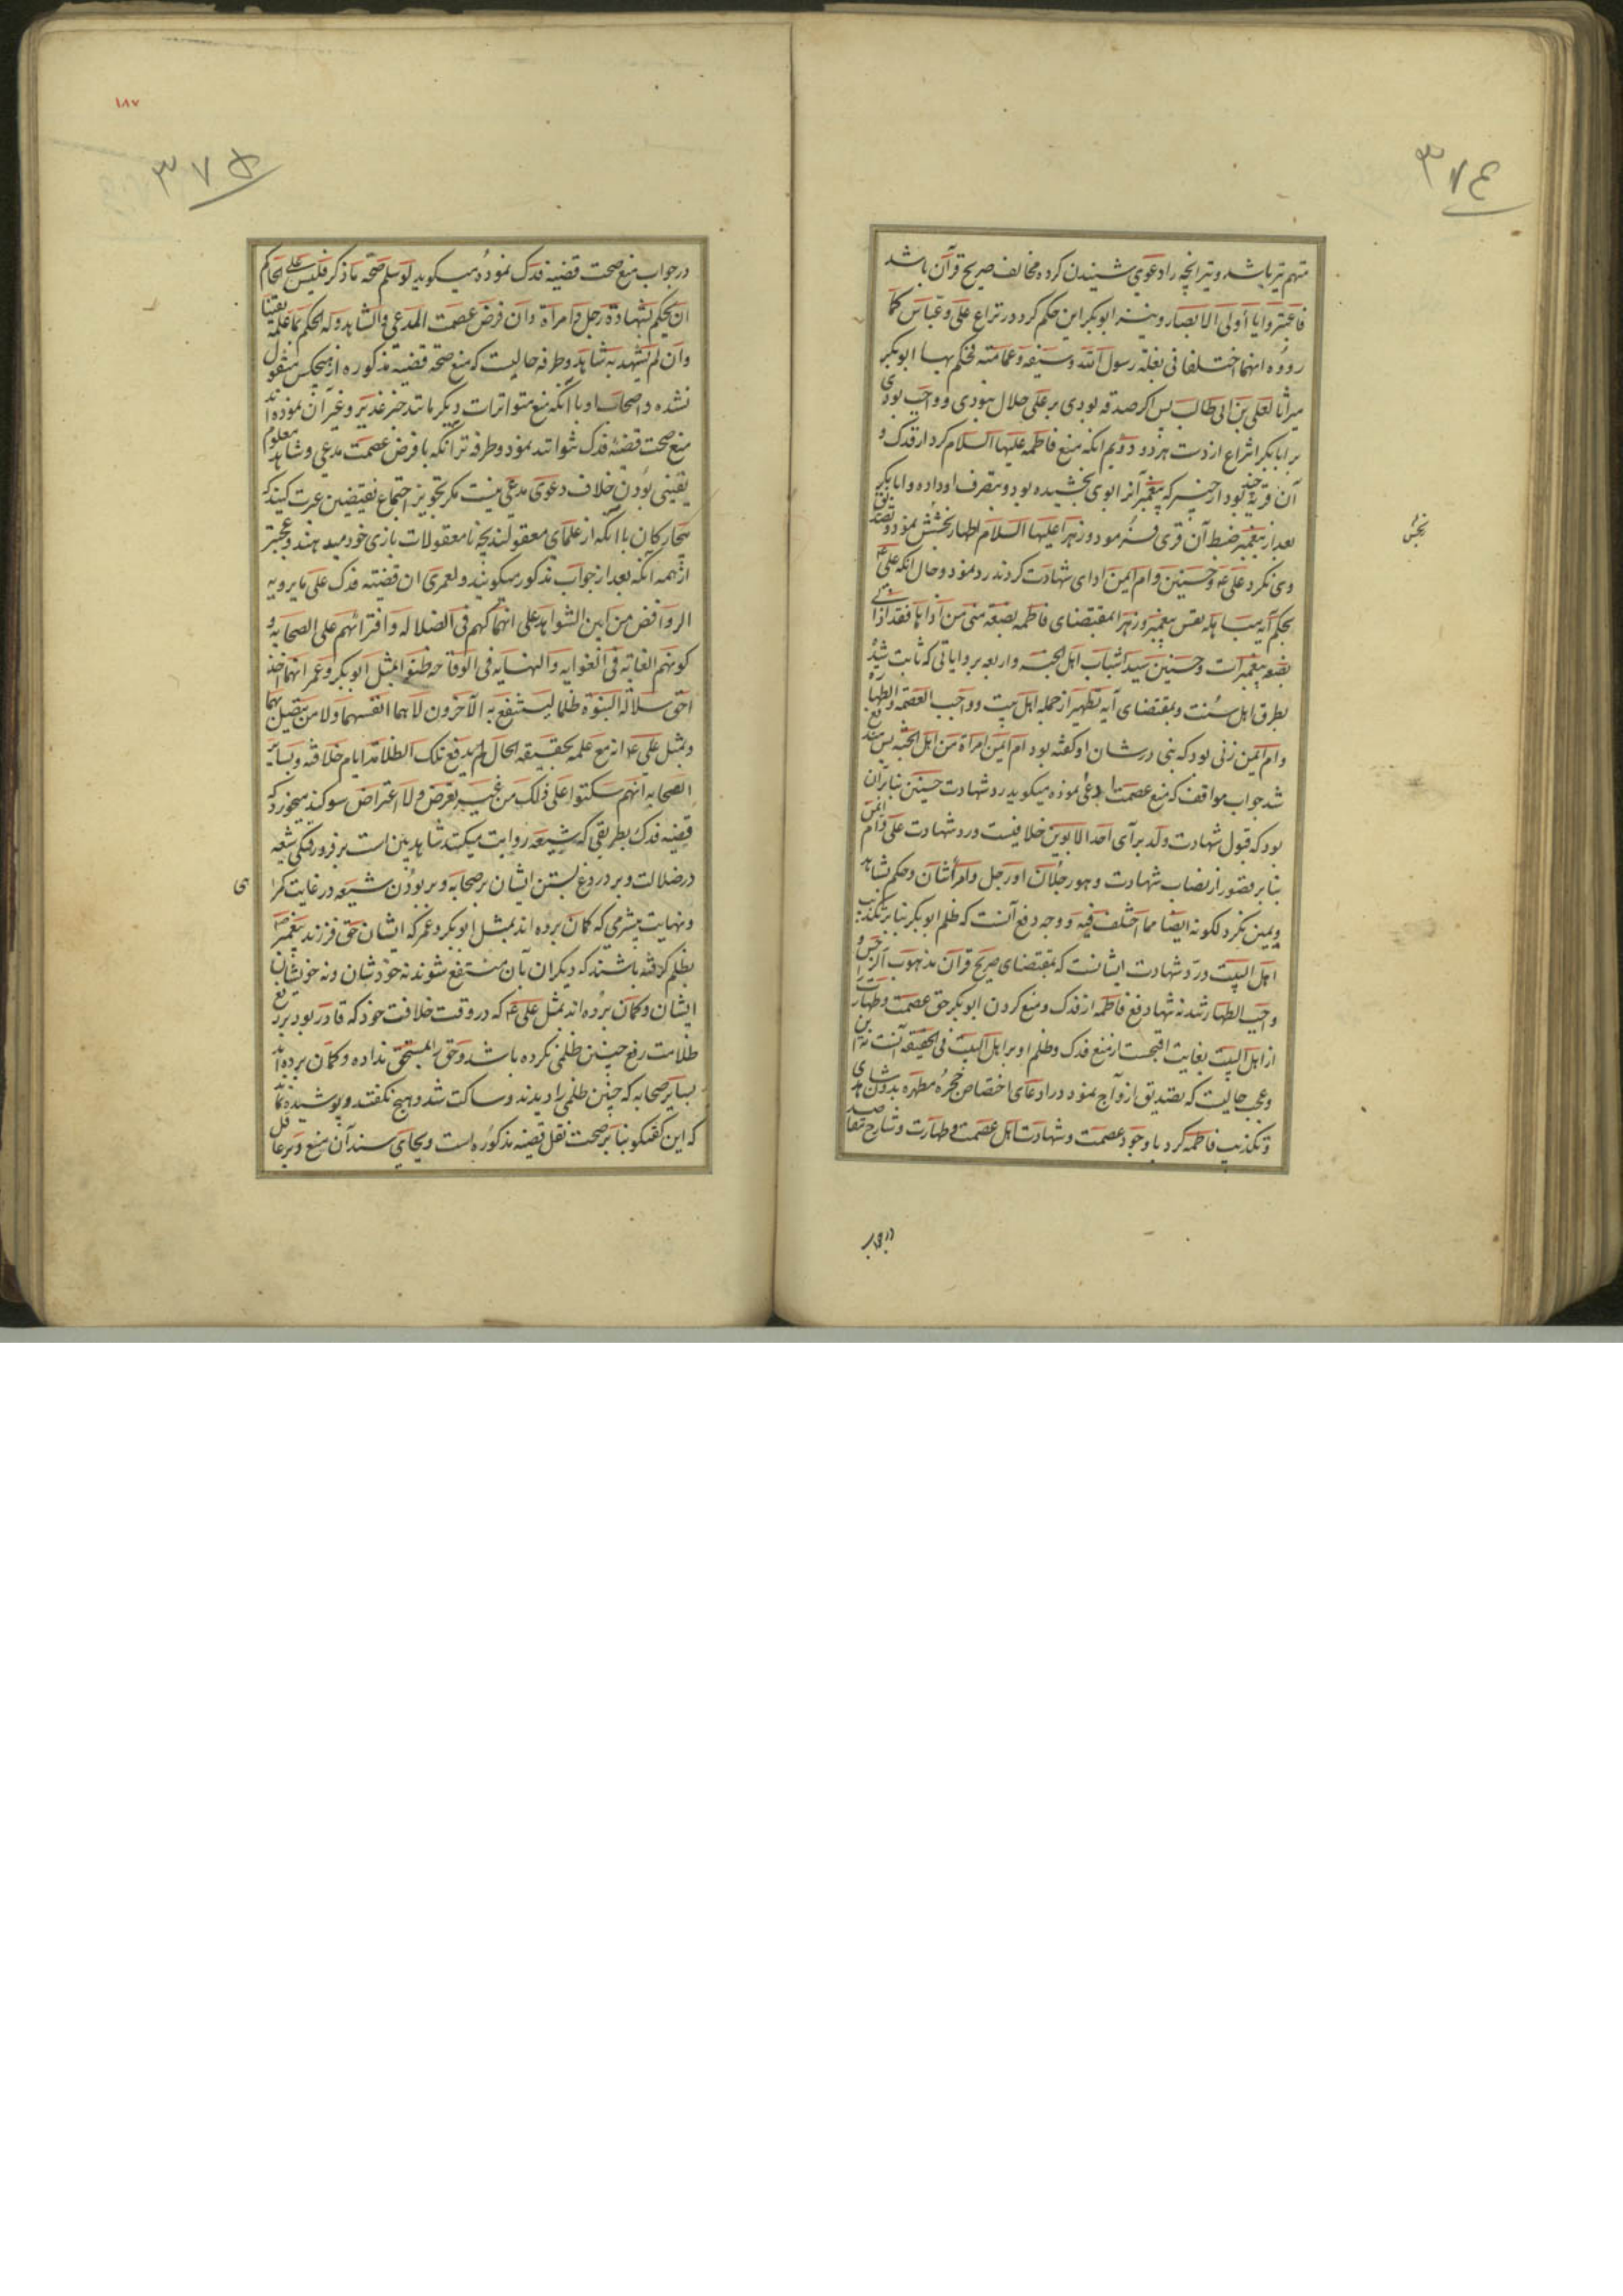 ٣٧٤
متهم نیز باشد و نیز انچه را دعوی شنیدن کرده مخالف صریح قرآن باشد
فاعتبروا یا أولی الابصار و نیز ابوبکر این حکم کرد در نزاع علی و عباس کما
رووه انهما اختلفا فی بغلة رسول الله و سیفه و عمامته فحکم بها ابوبکر
میراثا لعلی بن ابی طالب پس اگر صدقه بودی بر علی حلال نبودی و واجب بودی
بر ابابکر انتزاع از دست هر دو دویم انکه منع فاطمه علیها السلام کرد از فدک و
آن قریه چند بود از خیبر که پیغمبر آنرا بوی بخشیده بود و بتصرف او داده و ابابکر
بعد از پیغمبر ضبط آن قری فرمود و زهرا علیها السلام اظهار بخشش نمود و تصدیق
وی نکرد علی ع و حسنین و ام ایمن ادای شهادت کردند رد نمود و حال انکه علی ع
بحکم آیه مباهله نفس پیغمبر و زهرا بمقتضای فاطمه بضعة منی من آذاها فقد آذانی
بضعه پیغمبرست و حسنین سیدا شباب اهل الجنه و اربعه بروایاتی که ثابت شده
بطرق اهل سنت و بمقتضای آیه تطهیر از جمله اهل بیت و واجب العصمه و الطهاره
و ام ایمن زنی بود که نبی در شان او گفته بود ام ایمن امراة من اهل الجنه پس مندفع
شد جواب مواقف که منع عصمت مدعی نموده میگوید رد شهادت حسنین بنا بر آن
بود که قبول شهادت ولد برای احد الابوین خلافیست و رد شهادت علی و ام ایمن
بنا بر قصور از نصاب شهادت و هو رجلان او رجل و امرأتان و حکم بشاهد
و یمین نکرد لکونه ایضا مما اختلف فیه و وجه دفع آنست که ظلم ابوبکر بنا بر تکذیب
اهل البیت و رد شهادت ایشانست که بمقتضای صریح قرآن مذهوب الرجس و
واجب الطهاره شدند نه تنها دفع فاطمه از فدک و منع کردن ابوبکر حق عصمت و طهارت را
از اهل البیت بغایت اقبحست از منع فدک و ظلم او بر اهل البیت فی الحقیقه آنست نه این
و عجب حالیست که تصدیق ازواج نمود در ادعای اختصاص حجره مطهره بدون شاهدی
و تکذیب فاطمه کرد با وجود عصمت و شهادت اهل عصمت و طهارت و شارح مقاصد
در جواب
١٨٧
٣٧۵
در جواب منع صحت قضیه فدک نموده میگوید لو سلم صحة ما ذکر فلیس علی الحاکم
ان یحکم بشهادة رجل و امراة و ان فرض عصمت المدعی و الشاهد و له الحکم بما علمه یقینا
و ان لم یشهد به شاهد و طرفه حالیست که منع صحة قضیه مذکوره از هیچکس منقول
نشده و اصحاب او با آنکه منع متواترات دیگر مانند خبر غدیر و غیر آن نموده اند
منع صحت قضیه فدک نتوانند نمود و طرفه تر آنکه با فرض عصمت مدعی و شاهد معلوم
یقینی بودن خلاف دعوی مدعی نیست مگر تجویز اجتماع نقیضین عبرت گیرند که
بیچارکان با آنکه از علمای معقولند بچه نامعقولات بازی خود میدهند و عجبتر
از همه آنکه بعد از جواب مذکور میگویند و لعمری ان قضیة فدک علی ما یرویه
الروافض من ابین الشواهد علی انهماکهم فی الضلاله و افترائهم علی الصحابه و
کونهم الغایه فی الغوایه و النهایه فی الوقاحه ظنوا بمثل ابوبکر و عمر انهما اخذا
حق سلالة النبوة ظلما لینتفع به الآخرون لا هما انفسهما و لا من یتصل بهما
و بمثل علی ع انه مع علمه بحقیقه الحال لم یدفع تلک الظلامة ایام خلافته و بسائر
الصحابه انهم سکتوا علی ذلک من غیر تعرض و لا اعتراض سوکند میخورد که
قضیه فدک بطریقی که شیعه روایت میکند شاهد بین است بر فرو رفتگی شیعه
در ضلالت و بر دروغ بستن ایشان بر صحابه و بر بودن شیعه در غایت گمراهی
و نهایت بیشرمی که گمان برده اند بمثل ابوبکر و عمر که ایشان حق فرزند پیغمبر
بظلم گرفته باشند که دیگران بآن منتفع شوند نه خودشان و نه خویشان
ایشان و گمان برده اند بمثل علی ع که در وقت خلافت خود که قادر بود بر رفع
ظلامت رفع چنین ظلمی نکرده باشد و حق را بمستحق نداده و گمان برده اند
بسایر صحابه که چنین ظلمی را دیدند و ساکت شد و هیچ نگفتند و پوشیده نماند
که این گفتگو بنا بر صحت نقل قضیه مذکوره است و بجای سند آن منع و بر عاقل